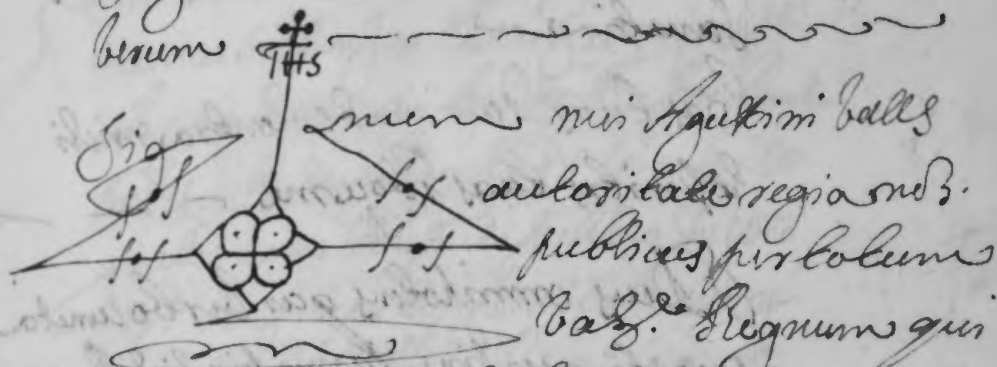 verum IHS
Sig num mei Agustini Valls
autoritate regia not.
publicus per totum
Val.ᵉ Regnum qui